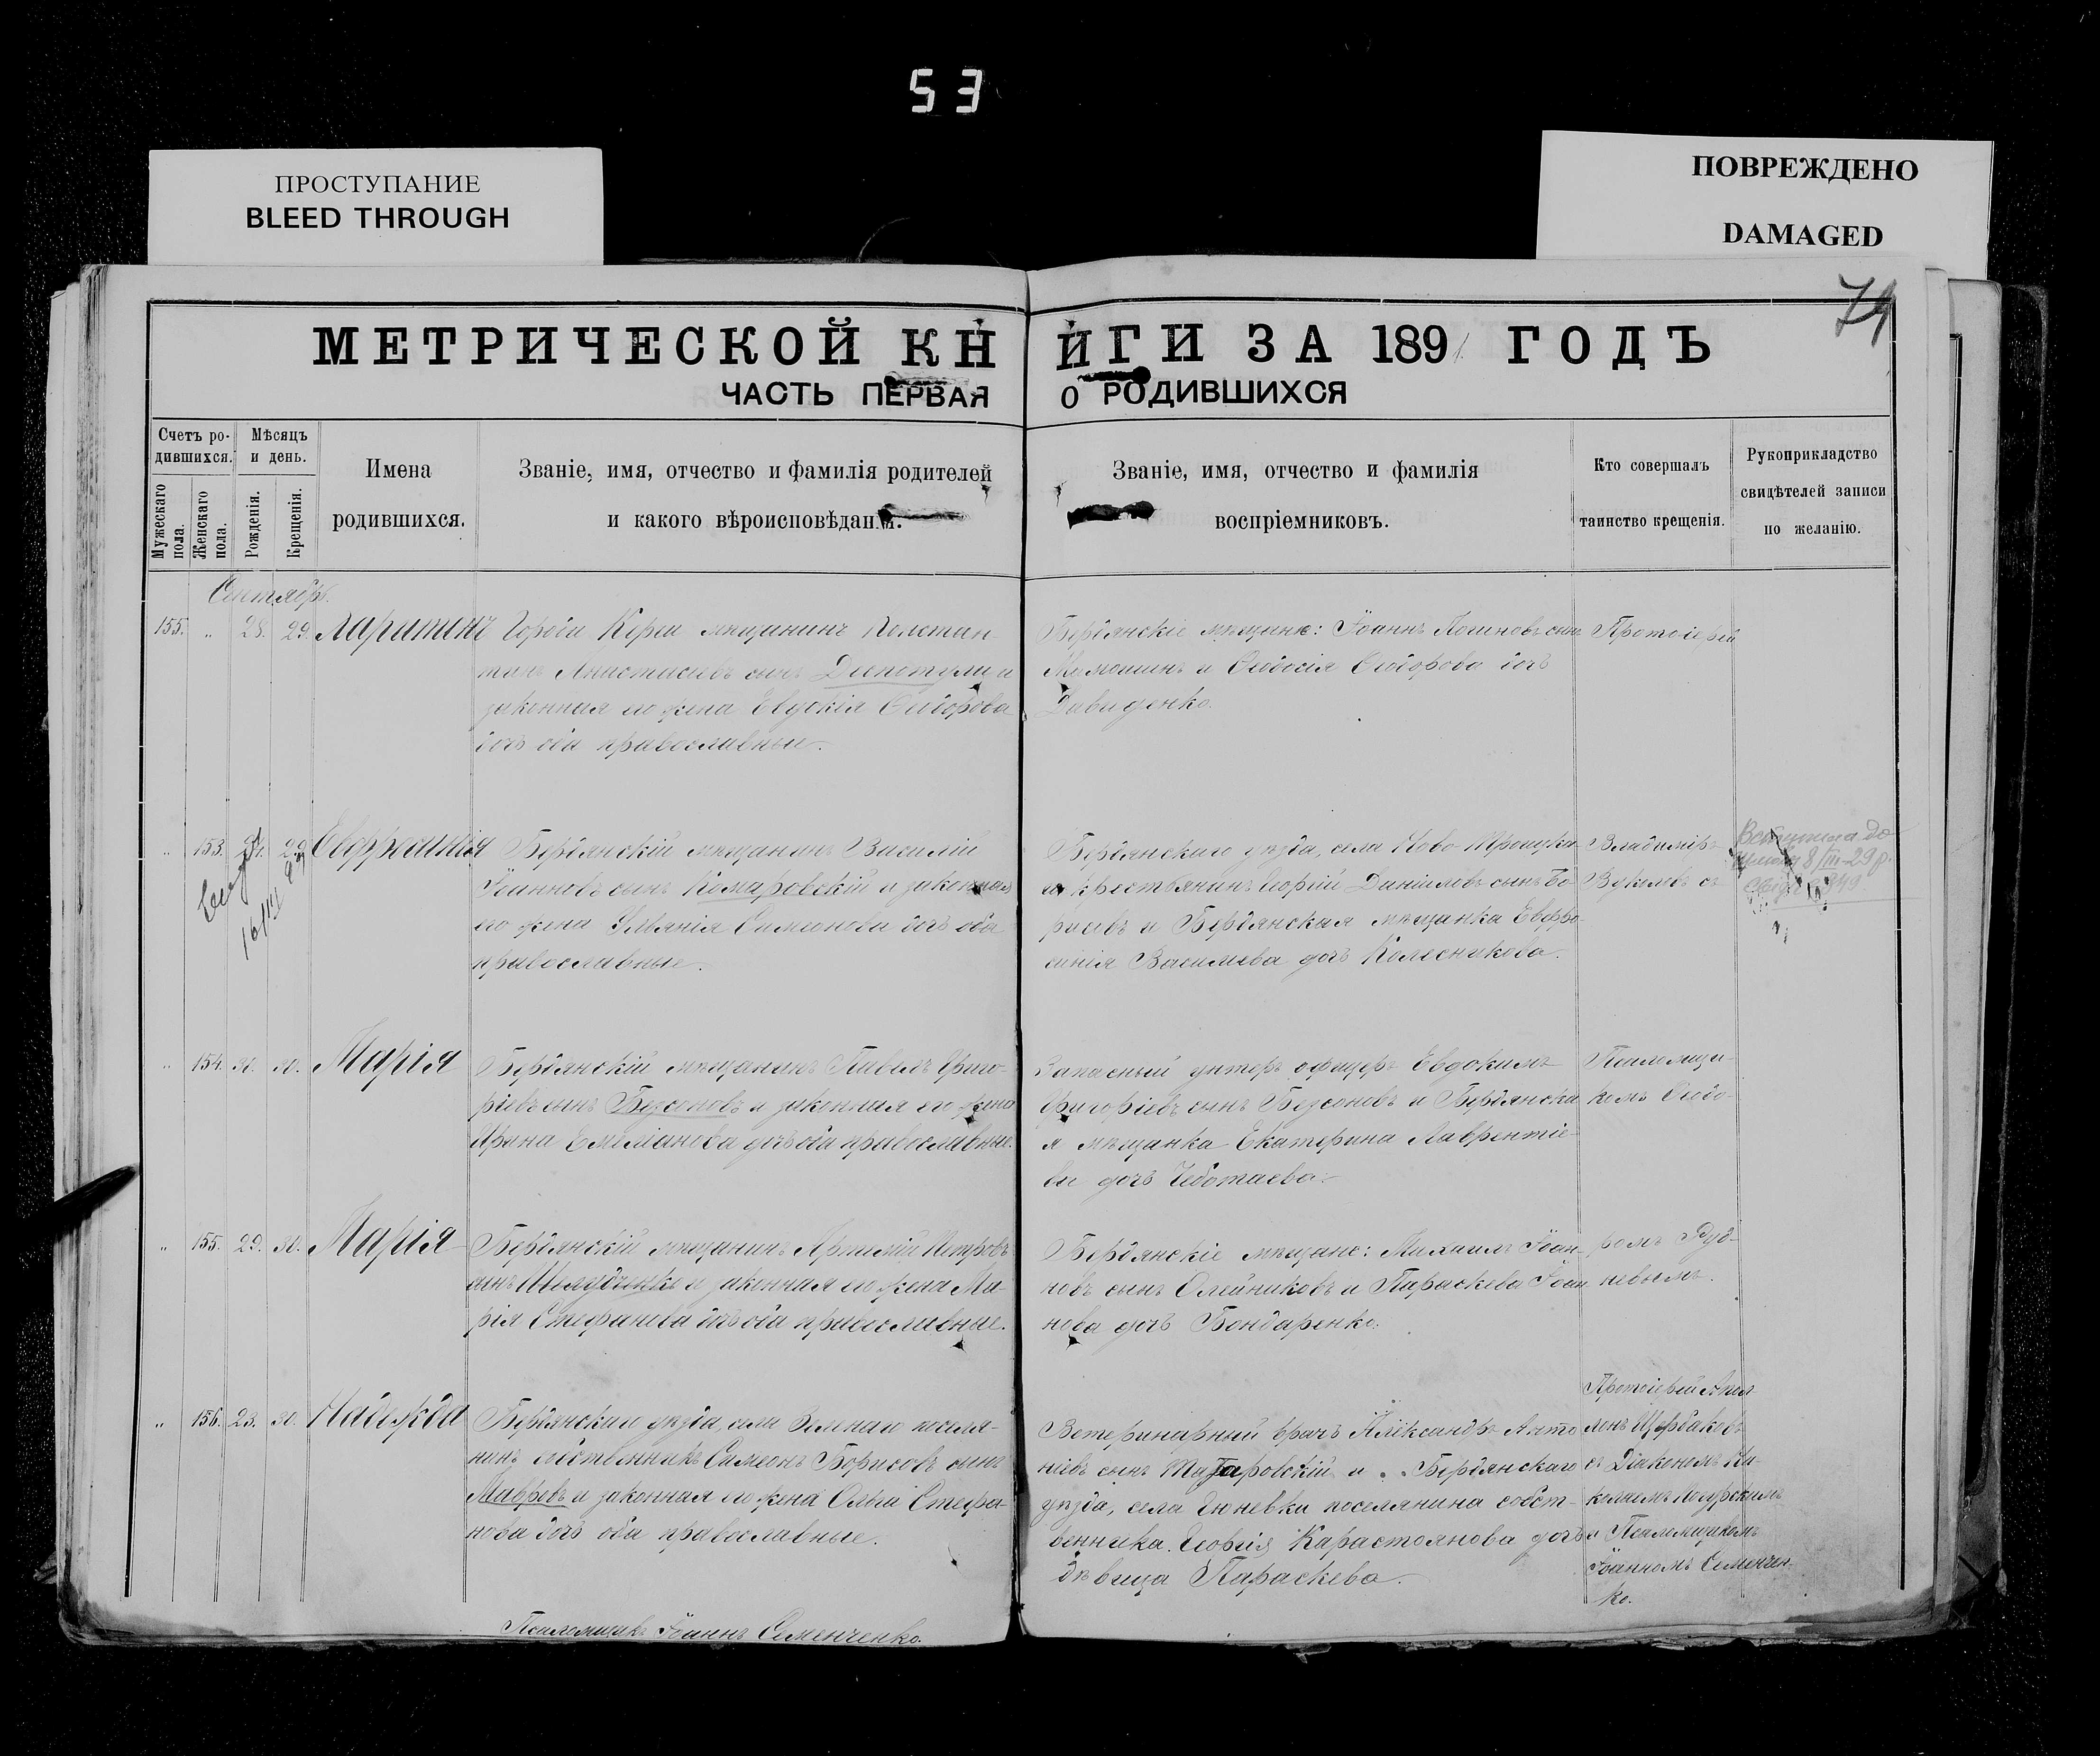 53
ПРОСТУПАНИЕ
BLEED THROUGH
ПОВРЕЖДЕНО
DAMAGED
МЕТРИЧЕСКОЙ КНИГИ ЗА 1891 ГОДЪ
ЧАСТЬ ПЕРВАЯ О РОДИВШИХСЯ
Счетъ ро-
дившихся.
Мужескаго пола.
Женскаго пола.
Мѣсяцъ
и день.
Рожденія.
Крещенія.
Имена
родившихся.
Званіе, имя, отчество и фамилія родителей
и какого вѣроисповѣданія.
Званіе, имя, отчество и фамилія
воспріемниковъ.
Кто совершалъ
таинство крещенія.
Рукоприкладство
свидѣтелей записи
по желанію.
Сентябрь.
155. " 28. 29. Харитинъ
Города Керчи мѣщанинъ Констан-
тинъ Анастасіевъ сынъ и
законная его жена Евдокія Ѳеодорова
дочь оба православные.
Бердянскіе мѣщане: Іоаннъ Логиновъ сынъ
и Ѳеодосія Ѳеодорова дочь
Давиденко.
Протоіерей
" 153. 29. Евфросинія
Бердянскій мѣщанинъ Василій
Іоанновъ сынъ Комаровскій и законная
его жена Симеонова дочь оба
православные.
Бердянскаго уѣзда, села Ново Троицка-
го крестьянинъ Георгій Даніиловъ сынъ Бо-
рисовъ и Бердянская мѣщанка Евфро-
синія Васильева дочь Колесникова.
Владиміръ
съ
8/III-29 р.
16/III
" 154. 30. 30. Марія
Бердянскій мѣщанинъ Павелъ Григо-
ріевъ сынъ Безсоновъ и законная его жена
Ирина Емеліанова дочь оба православные.
Запасный унтеръ офицеръ Евдокимъ
Григоріевъ сынъ Безсоновъ и Бердянска-
я мѣщанка Екатерина Лаврентіе-
ва дочь Чеботаева.
Псаломщи-
комъ Ѳеодо-
" 155. 29. 30. Марія
Бердянскій мѣщанинъ Артемій Петровъ
сынъ и законная его жена Ма-
рія Стефанова дочь оба православные.
Бердянскіе мѣщане: Михаилъ Іоан-
новъ сынъ Олейниковъ и Параскева Іоан-
нова дочь Бондаренко.
ромъ Руд-
невымъ.
" 156. 23. 30. Надежда
Бердянскаго уѣзда, села поселя-
нинъ собственникъ Симеонъ Борисовъ сынъ
Мавровъ и законная его жена Ольга Стефа-
нова дочь оба православные.
Ветеринарный врачъ Александръ Анто-
ніевъ сынъ и Бердянскаго
уѣзда, села поселянина собст-
венника Георгія Карастоянова дочь
дѣвица Параскева.
Протоіерей
Щербаковъ
съ Діакономъ Ни-
колаемъ
и Псаломщикомъ
Іоанномъ Семенчен-
ко.
Псаломщикъ Іоаннъ Семенченко.